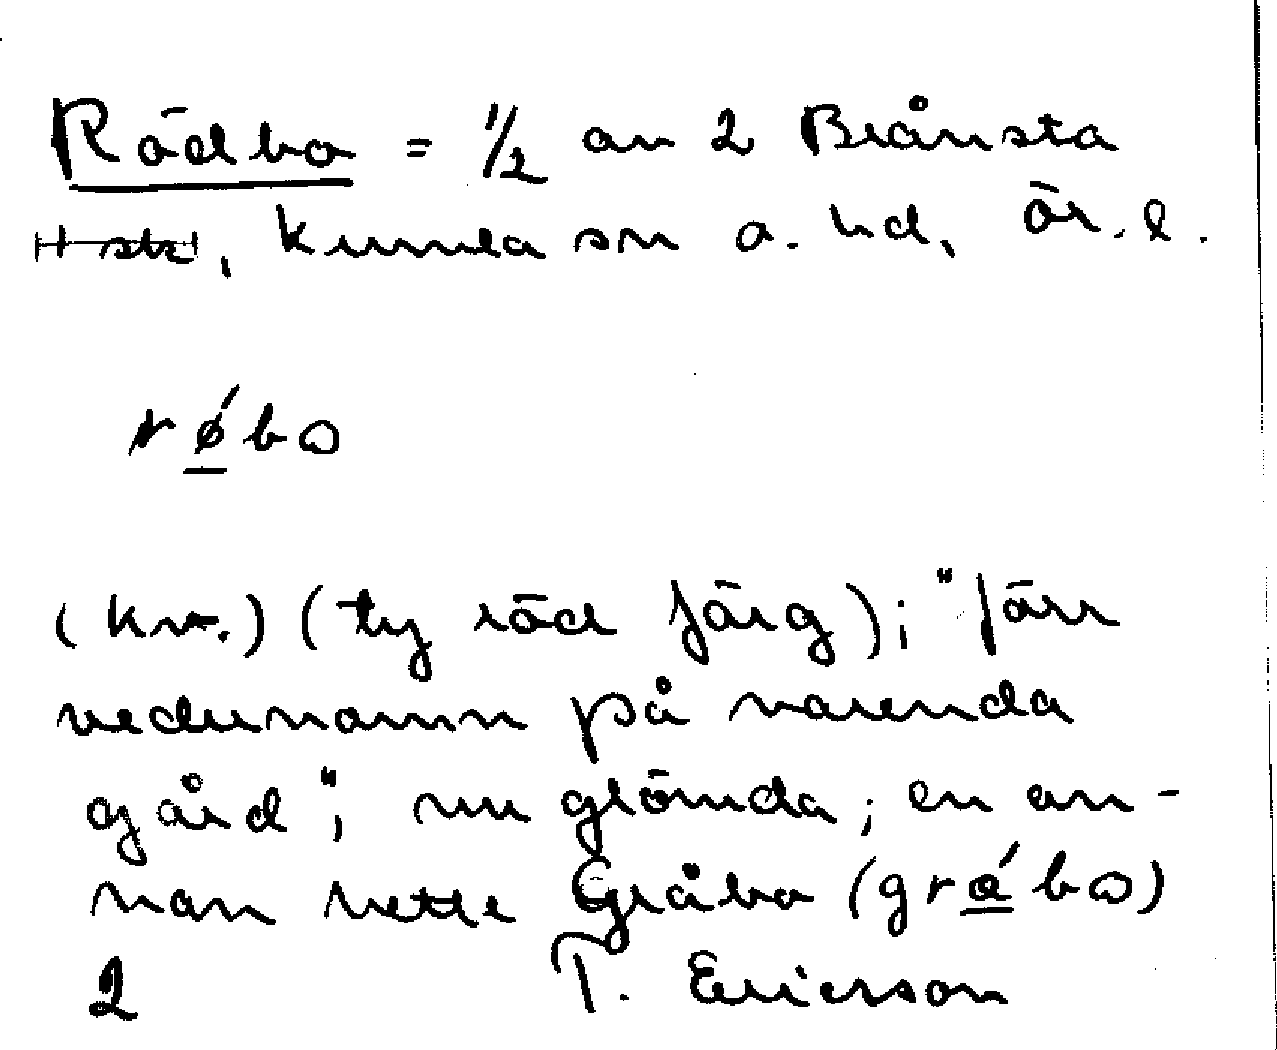 Rödbo = 1/2 av 2 Brånsta
Hsk, Kumla sn o. hd, ör. l.
rǿbo
(kv.) (ty röd färg); "förr
vedernamn på varenda
gård", nu glömda; en an-
nan hette Gråbo (grά̱bo)
2 T. Ericsson